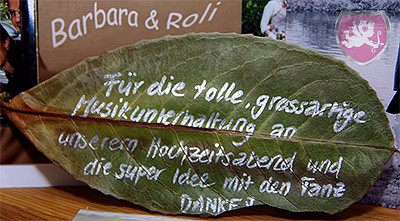 Barbara & Roli
Für die tolle, grossartige
Musikunterhaltung an
unserem Hochzeitsabend und
die super Idee mit den Tanz
DANKE!